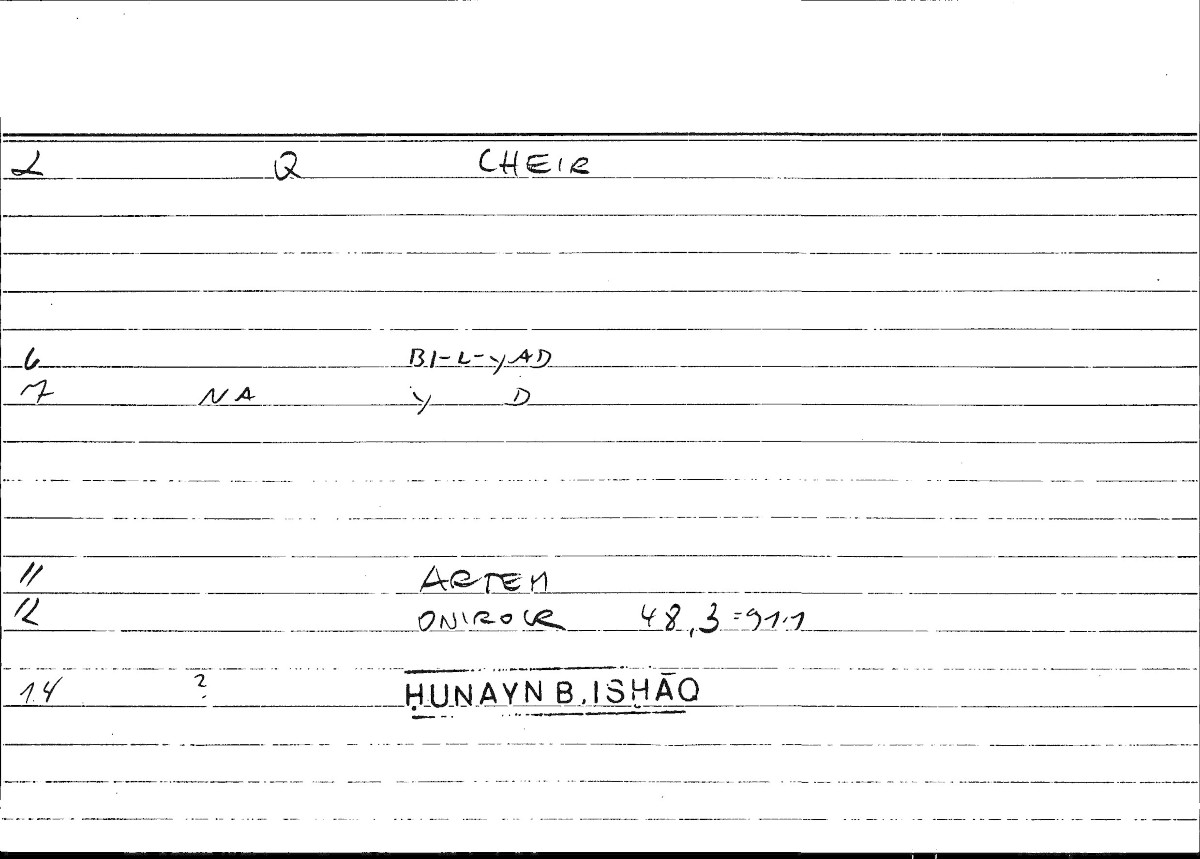 2 Q CHEIR
6 BI-L-YAD
7 NA Y D
11 ARTEM
12 ONIROCR 48,3=91.1
14 ? ḤUNAYN B. ISḤĀQ